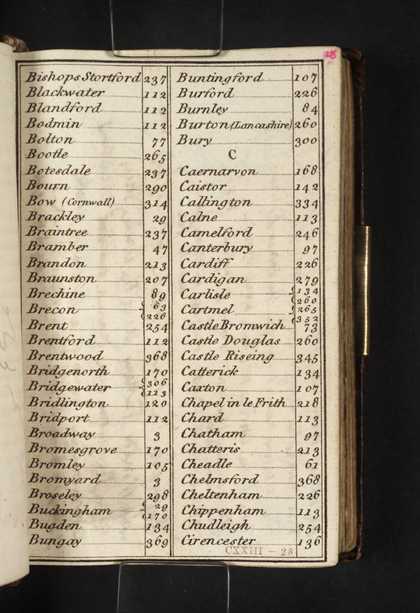 28
Bishops Stortford 237
Blackwater 112
Blandford 112
Bodmin 112
Bolton 77
Bootle 265
Botesdale 237
Bourn 290
Bow (Cornwall) 314
Brackley 29
Braintree 237
Bramber 47
Brandon 213
Braunston 207
Brechine 89
Brecon 63
226
Brent 254
Brentford 112
Brentwood 368
Bridgenorth 170
Bridgewater 306
113
Bridlington 120
Bridport 112
Broadway 3
Bromesgrove 170
Bromley 105
Bromyard 3
Broseley 298
Buckingham 29
170
Bugden 134
Bungay 369
Buntingford 107
Burford 226
Burnley 84
Burton (Lancashire) 260
Bury 300
C
Caernarvon 168
Caistor 142
Callington 334
Calne 113
Camelford 246
Canterbury 97
Cardiff 226
Cardigan 279
Carlisle 134
260
Cartmel 265
352
Castle Bromwich 73
Castle Douglas 260
Castle Riseing 345
Catterick 134
Caxton 107
Chapel in le Frith 218
Chard 113
Chatham 97
Chatteris 213
Cheadle 61
Chelmsford 368
Cheltenham 226
Chippenham 113
Chudleigh 254
Cirencester 136
CXXIII - 28